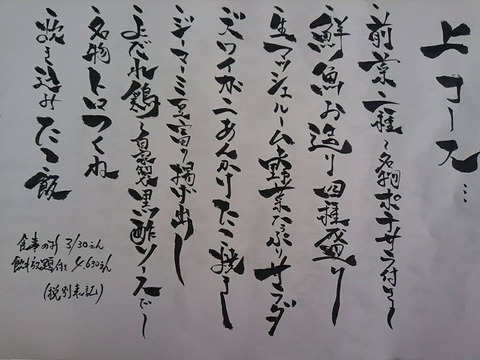 上コース…
前菜二種～名物ポテサラ付き～
鮮魚お造り四種盛り
生マッシュルームと野菜たっぷりサラダ
ズワイガニあんかけたこ焼き
ジーマーミ豆富の揚げ出し
よだれ鶏～自家製黒酢ソースで～
名物トロつくね
炊き込みたこ飯
食事のみ 3130えん
飲み放題付 4.630えん
(税別表記)